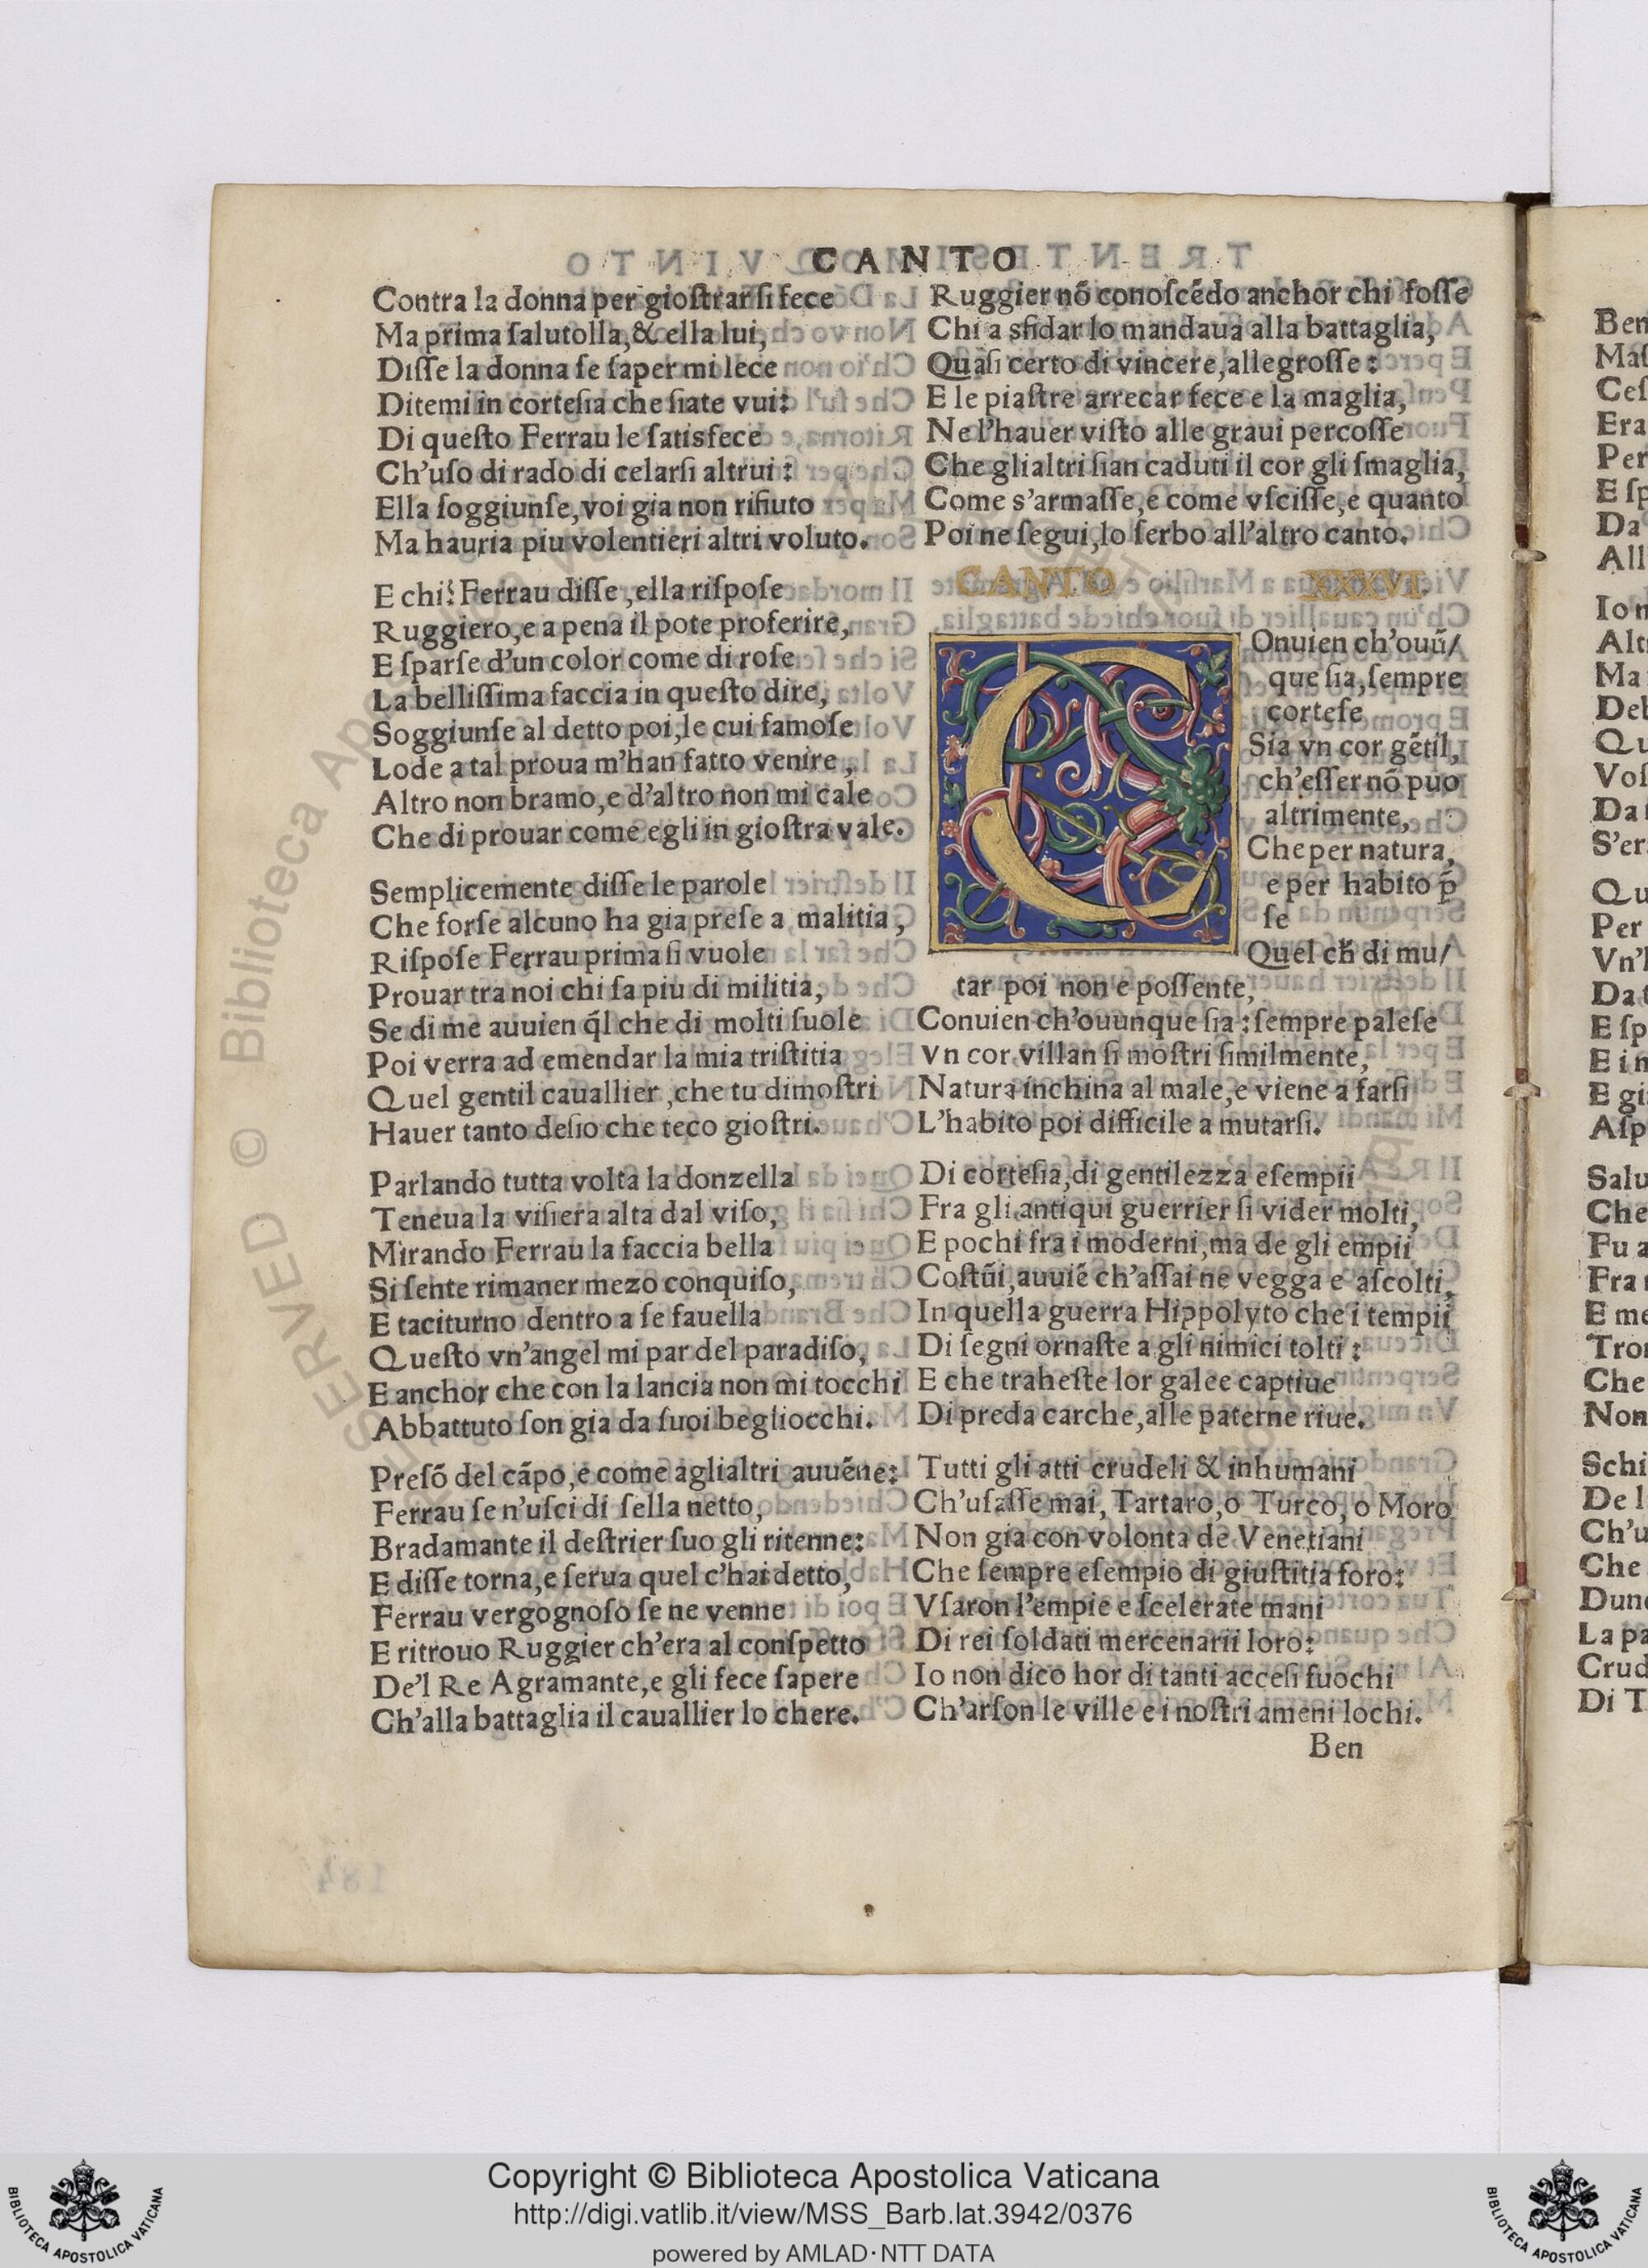 CANTO
Contra la donna per gioſtrar ſi fece
Ma prima ſalutolla,& ella lui,
Diſſe la donna ſe ſaper mi lece
Ditemi in corteſia che ſiate vui:
Di queſto Ferrau le ſatisfece
Ch'uſo di rado di celarſi altrui:
Ella ſoggiunſe,voi gia non rifiuto
Ma hauria piu volentieri altri voluto.
E chi? Ferrau diſſe,ella riſpoſe
Ruggiero,e a pena il pote proferire,
E ſparſe d'un color come di roſe
La belliſſima faccia in queſto dire,
Soggiunſe al detto poi,le cui famoſe
Lode a tal proua m'han fatto venire,
Altro non bramo,e d'altro non mi cale
Che di prouar come egli in gioſtra vale.
Semplicemente diſſe le parole
Che forſe alcuno ha gia preſe a malitia,
Riſpoſe Ferrau prima ſi vuole
Prouar tra noi chi ſa piu di militia,
Se di me auuien q̃l che di molti ſuole
Poi verra ad emendar la mia triſtitia
Quel gentil cauallier,che tu dimoſtri
Hauer tanto deſio che teco gioſtri.
Parlando tutta volta la donzella
Teneua la viſiera alta dal viſo,
Mirando Ferrau la faccia bella
Si ſente rimaner mezo conquiſo,
E taciturno dentro a ſe fauella
Queſto vn'angel mi par del paradiſo,
E anchor che con la lancia non mi tocchi
Abbattuto ſon gia da ſuoi begliocchi.
Preſõ del cãpo,e come aglialtri auuẽne:
Ferrau ſe n'uſci di ſella netto,
Bradamante il deſtrier ſuo gli ritenne:
E diſſe torna,e ſerua quel c'hai detto,
Ferrau vergognoſo ſe ne venne
E ritrouo Ruggier ch'era al conſpetto
De'l Re Agramante,e gli fece ſapere
Ch'alla battaglia il cauallier lo chere.
Ruggier nõ conoſcẽdo anchor chi foſſe
Chi a sfidar lo mandaua alla battaglia,
Quaſi certo di vincere,allegroſſe:
E le piaſtre arrecar fece e la maglia,
Ne l'hauer viſto alle graui percoſſe
Che glialtri ſian caduti il cor gli ſmaglia,
Come s'armaſſe,e come vſciſſe,e quanto
Poi ne ſegui,lo ſerbo all'altro canto.
CANTO XXXVI.
COnuien ch'ouũ/
que ſia,ſempre
corteſe
Sia vn cor gẽtil,
ch'eſſer nõ puo
altrimente,
Che per natura,
e per habito p̃
ſe
Quel ch̃ di mu/
tar poi non e poſſente,
Conuien ch'ouunque ſia:ſempre paleſe
Vn cor villan ſi moſtri ſimilmente,
Natura inchina al male,e viene a farſi
L'habito poi difficile a mutarſi.
Di corteſia,di gentilezza eſempii
Fra gli antiqui guerrier ſi vider molti,
E pochi fra i moderni,ma de gli empii
Coſtũi,auuiẽ ch'aſſai ne vegga e aſcolti,
In quella guerra Hippolyto che i tempii
Di ſegni ornaſte a gli nimici tolti:
E che traheſte lor galee captiue
Di preda carche,alle paterne riue.
Tutti gli atti crudeli & inhumani
Ch'uſaſſe mai, Tartaro,o Turco, o Moro
Non gia con volonta de Venetiani
Che ſempre eſempio di giuſtitia foro:
Vſaron l'empie e ſcelerate mani
Di rei ſoldati mercenarii loro:
Io non dico hor di tanti acceſi fuochi
Ch'arſon le ville e i noſtri ameni lochi.
Ben
Ben
Maſ
Ceſ
Era
Per
E ſp
Da
All
Io n
Alt
Ma
Deb
Qu
Voſ
Da t
S'er
Qu
Per
Vn'
Da t
E ſp
E i n
E gi
Aſp
Salu
Che
Fu a
Fra
E me
Tro
Che
Non
Schi
De l
Ch'u
Che
Dun
La pa
Crud
Di T
Copyright © Biblioteca Apostolica Vaticana
http://digi.vatlib.it/view/MSS_Barb.lat.3942/0376
powered by AMLAD·NTT DATA
BIBLIOTECA APOSTOLICA VATICANA
BIBLIOTECA APOSTOLICA VATICANA